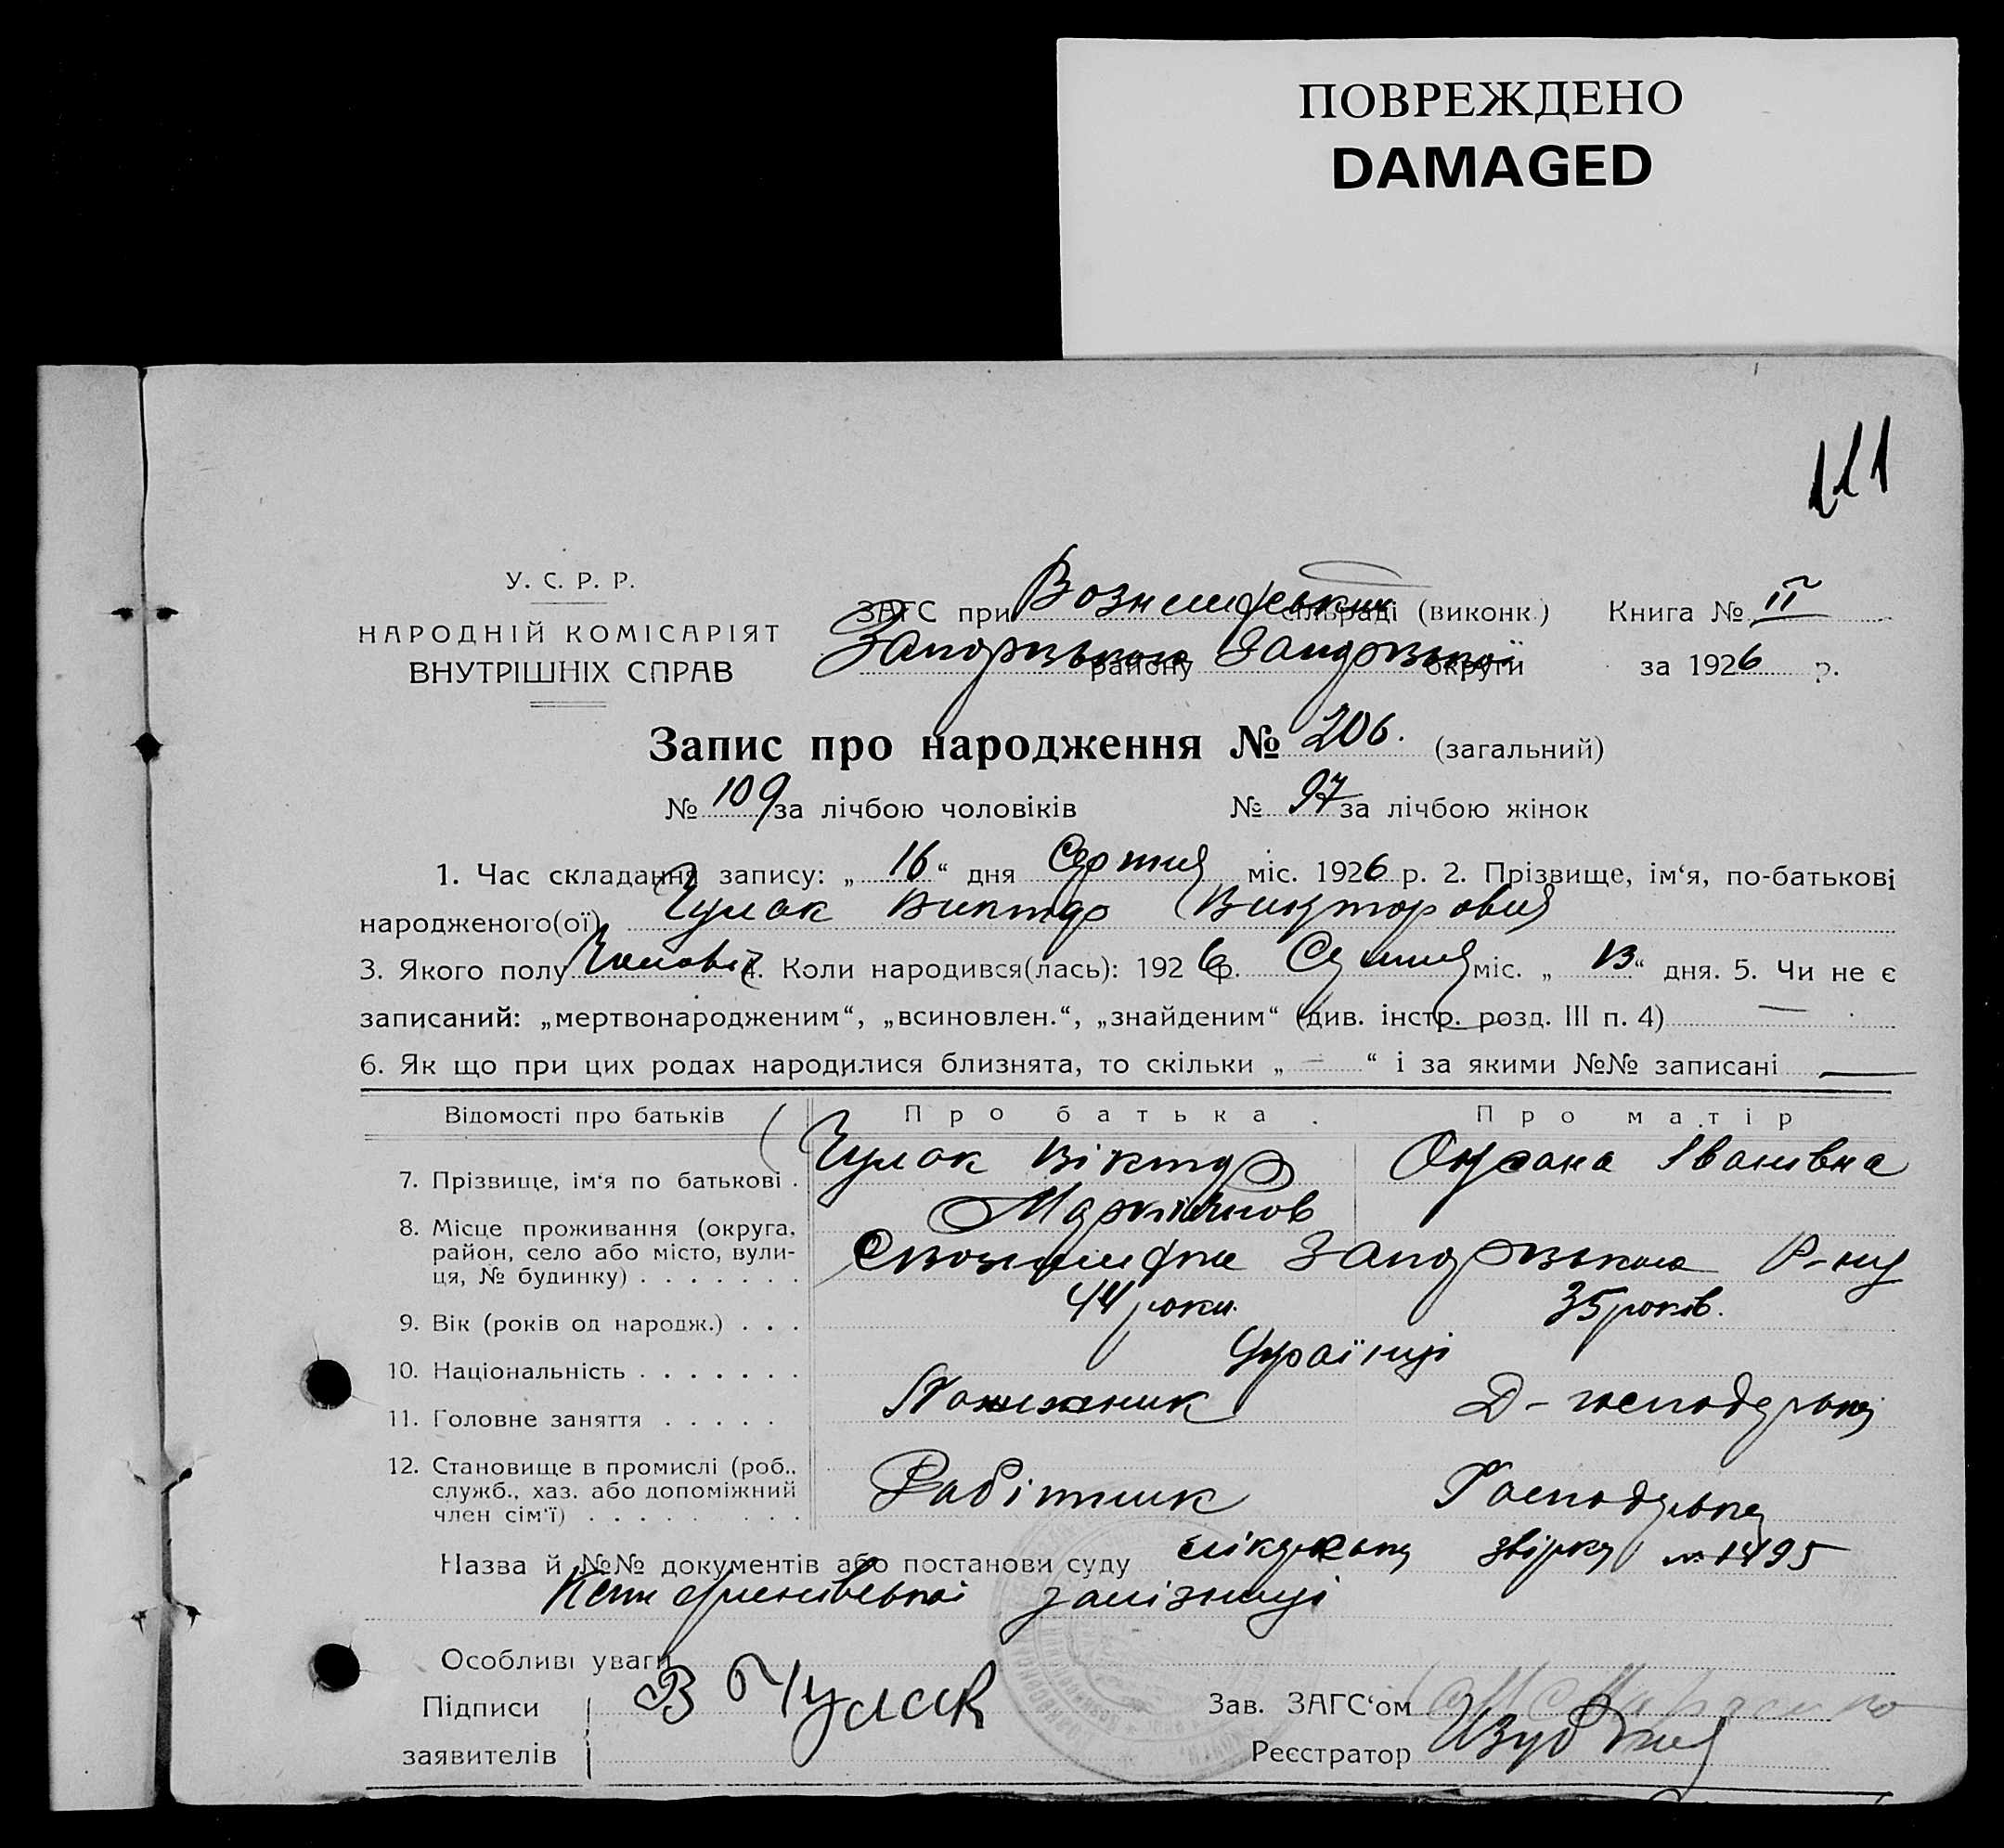 ПОВРЕЖДЕНО
DAMAGED
111
У. С. Р. Р.
НАРОДНІЙ КОМІСАРІЯТ
ВНУТРІШНІХ СПРАВ
ЗАГС при сільраді (виконк.) Книга № II
Запорізького району Запорізької округи за 1926 р.
Запис про народження № 206. (загальний)
№ 109 за лічбою чоловіків № 97 за лічбою жінок
1. Час складання запису: „ 16 “ дня Серпня міс. 1926 р. 2. Прізвище, ім‘я, по-батькові
народженого(ої) Гулак Виктор Викторович
3. Якого полу Чоловіч 4. Коли народився(лась): 1926 р. Серпня міс. „ 13 “ дня. 5. Чи не є
записаний: „мертвонародженим“, „всиновлен.“, „знайденим“ (див. інстр. розд. III п. 4) —
6. Як що при цих родах народилися близнята, то скільки „ — “ і за якими №№ записані —
Відомості про батьків Про батька. Про матір
7. Прізвище, ім‘я по батькові . Гулак Віктор Оксана Іванівна
8. Місце проживання (округа,
район, село або місто, вули-
ця, № будинку) . . . . . . . Запорізького Р-ну
9. Вік (років од народж.) . . . 44 роки. 35 років.
10. Національність . . . . . . . Українці
11. Головне заняття . . . . . Д-господарька
12. Становище в промислі (роб.,
служб., хаз. або допоміжний
член сім‘ї) . . . . . . . . . Робітник Господарька
Назва й №№ документів або постанови суду лікарська № 1495
Катериненівської залізниці
Особливі уваги
Підписи
заявителів В Гулак
Зав. ЗАГС‘ом
Реєстратор